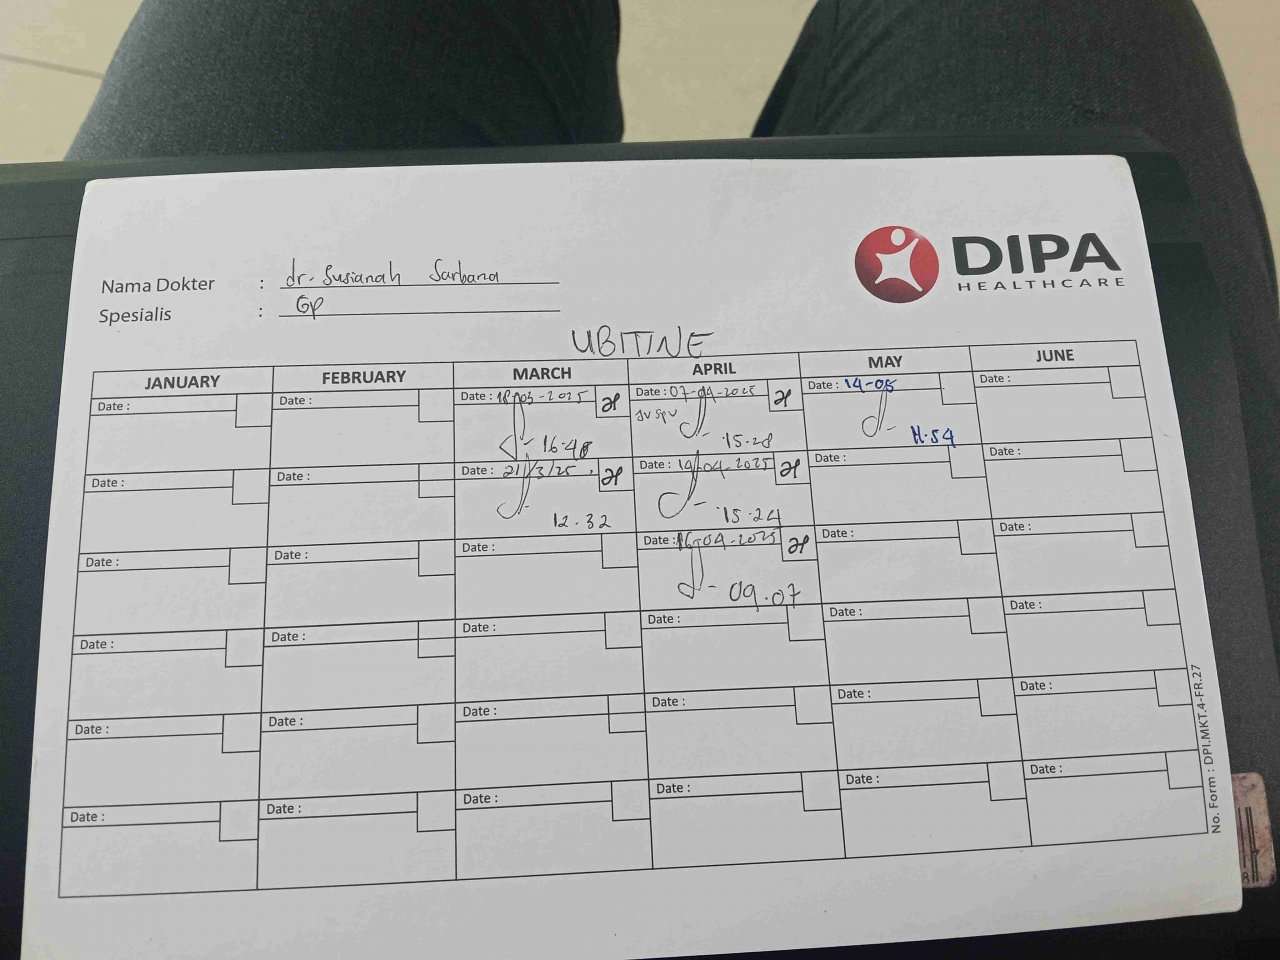 DIPA
HEALTHCARE
Nama Dokter : dr. Susianah Sarbana
Spesialis : GP
UBITINE
JANUARY FEBRUARY MARCH APRIL MAY JUNE
Date : Date : Date : 18-03-2025 Date : 07-04-2025 Date : 14-05 Date :
16.48 15.28 11.54
Date : Date : Date : 21/3/25 Date : 14-04-2025 Date : Date :
12.32 15.24
Date : Date : Date : Date : 16-04-2025 Date : Date :
09.07
Date : Date : Date : Date : Date : Date :
Date : Date : Date : Date : Date : Date :
Date : Date : Date : Date : Date : Date :
No. Form : DPI.MKT.4-FR.27